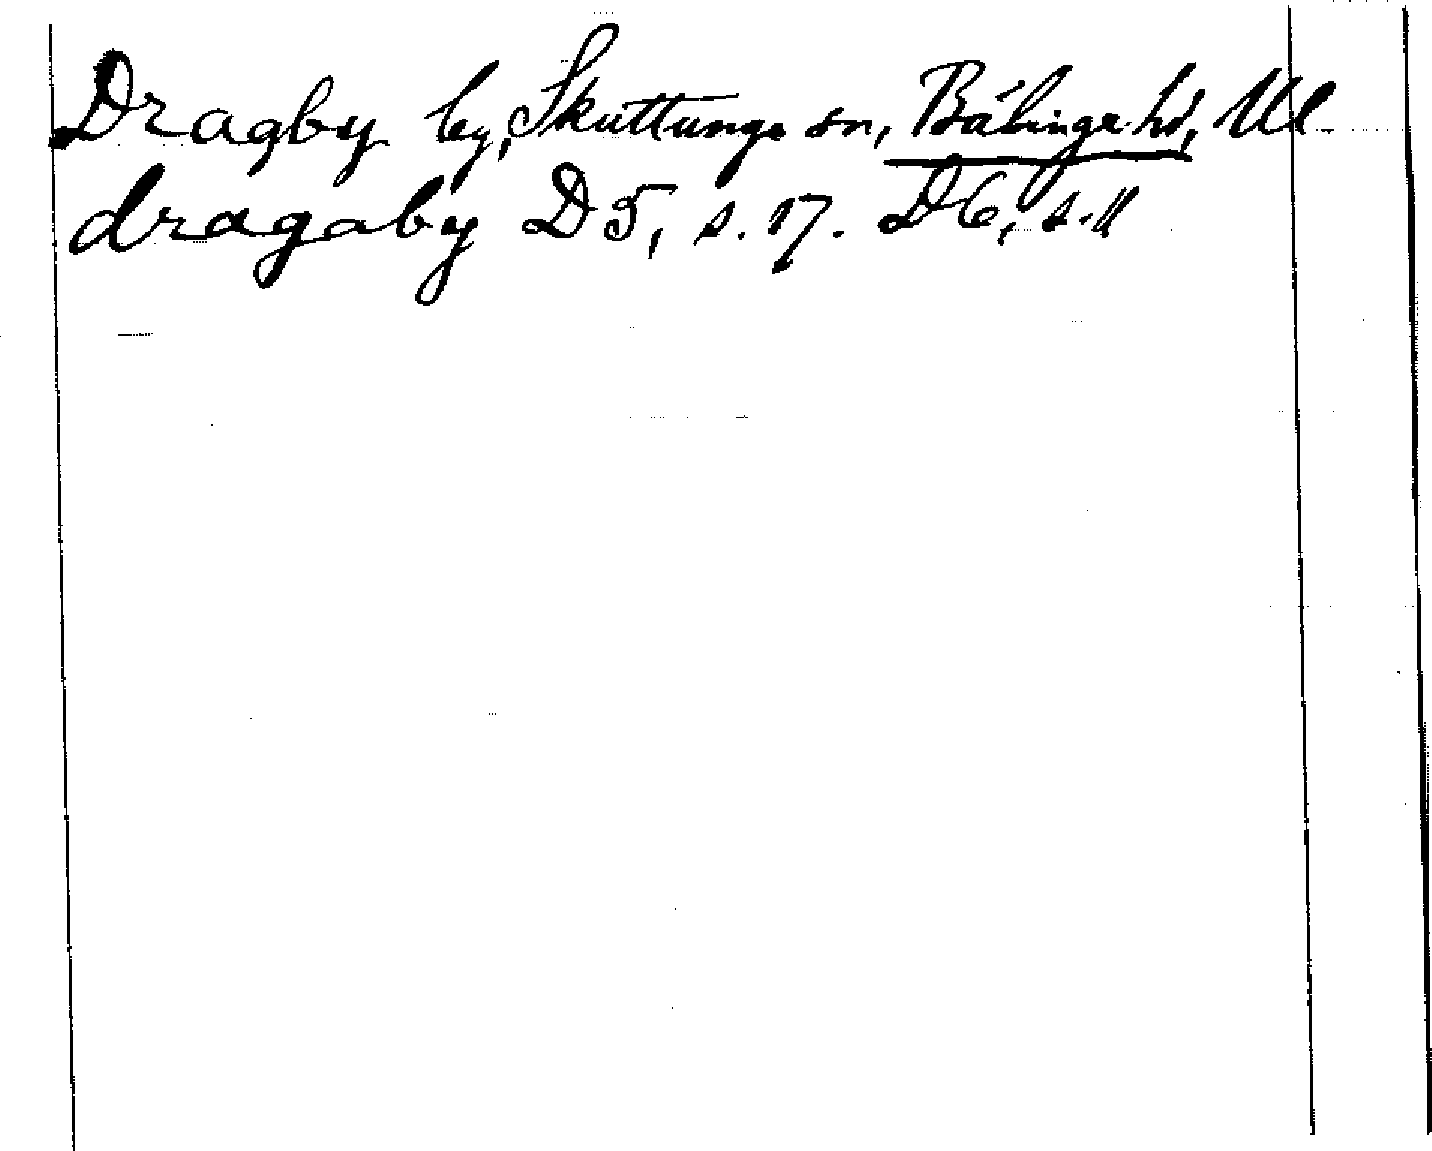 Dragby by, Skuttunge sn, Bälinge hd, Ul
dragaby D5, s. 17. D6, s. 11